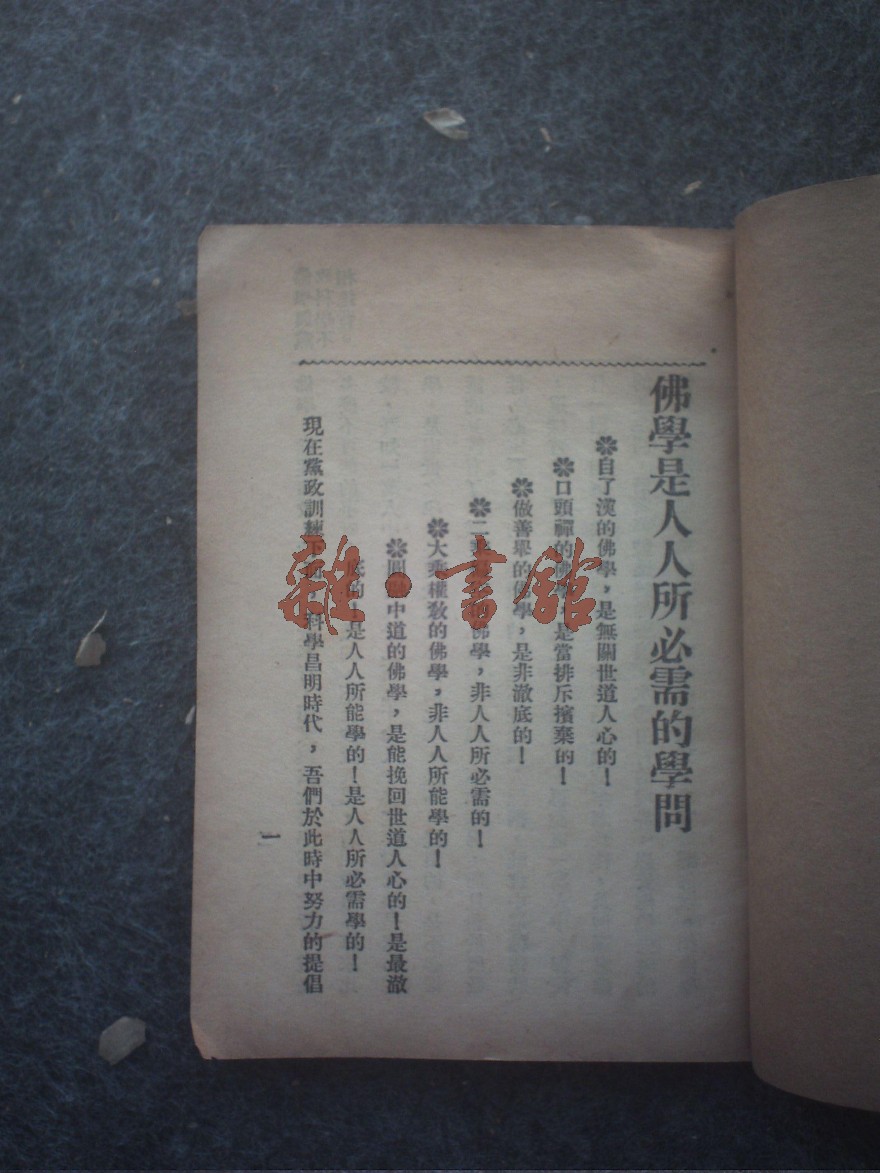 佛學是人人所必需的學問
✽自了漢的佛學，是無關世道人心的！
✽口頭禪的佛學，是當排斥擯棄的！
✽做善舉的佛學，是非澈底的！
✽二 佛學，非人人所必需的！
✽大乘權敎的佛學，非人人所能學的！
✽圓融中道的佛學，是能挽回世道人心的！是最澈
底的！是人人所能學的！是人人所必需學的！
現在黨政訓練 科學昌明時代，吾們於此時中努力的提倡
一
雜·書舘